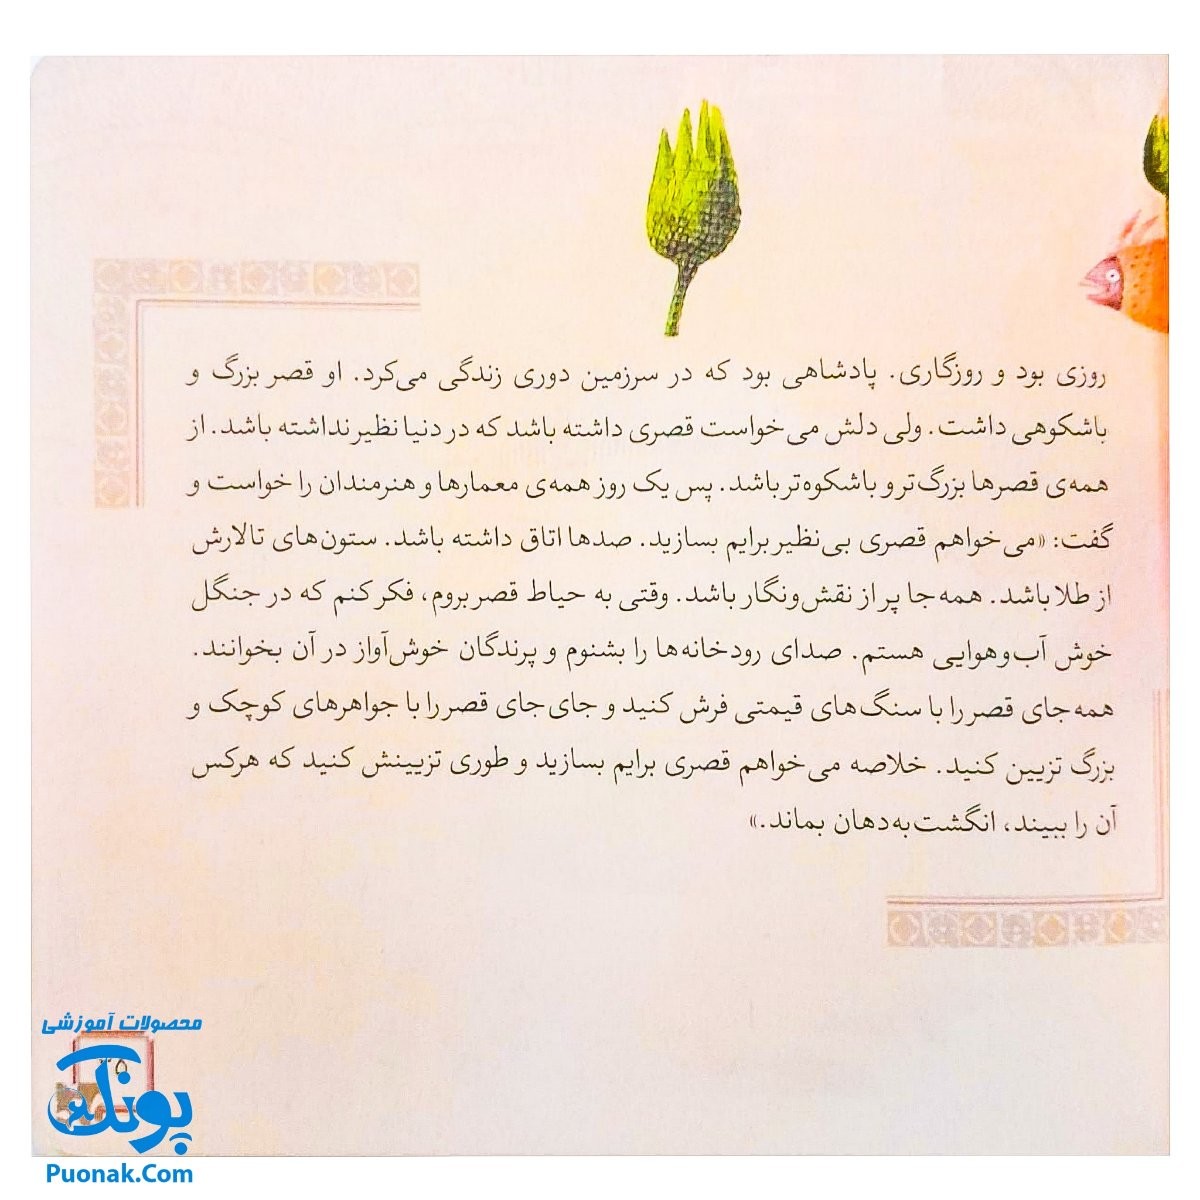 روزی بود و روزگاری. پادشاهی بود که در سرزمین دوری زندگی می‌کرد. او قصر بزرگ و
باشکوهی داشت. ولی دلش می‌خواست قصری داشته باشد که در دنیا نظیر نداشته باشد. از
همه‌ی قصرها بزرگ‌تر و باشکوه‌تر باشد. پس یک روز همه‌ی معمارها و هنرمندان را خواست و
گفت: «می‌خواهم قصری بی‌نظیر برایم بسازید. صدها اتاق داشته باشد. ستون‌های تالارش
از طلا باشد. همه جا پر از نقش‌ونگار باشد. وقتی به حیاط قصر بروم، فکر کنم که در جنگل
خوش آب‌وهوایی هستم. صدای رودخانه‌ها را بشنوم و پرندگان خوش‌آواز در آن بخوانند.
همه جای قصر را با سنگ‌های قیمتی فرش کنید و جای‌جای قصر را با جواهرهای کوچک و
بزرگ تزیین کنید. خلاصه می‌خواهم قصری برایم بسازید و طوری تزیینش کنید که هرکس
آن را ببیند، انگشت‌به‌دهان بماند.»
محصولات آموزشی
پونک
Puonak.Com